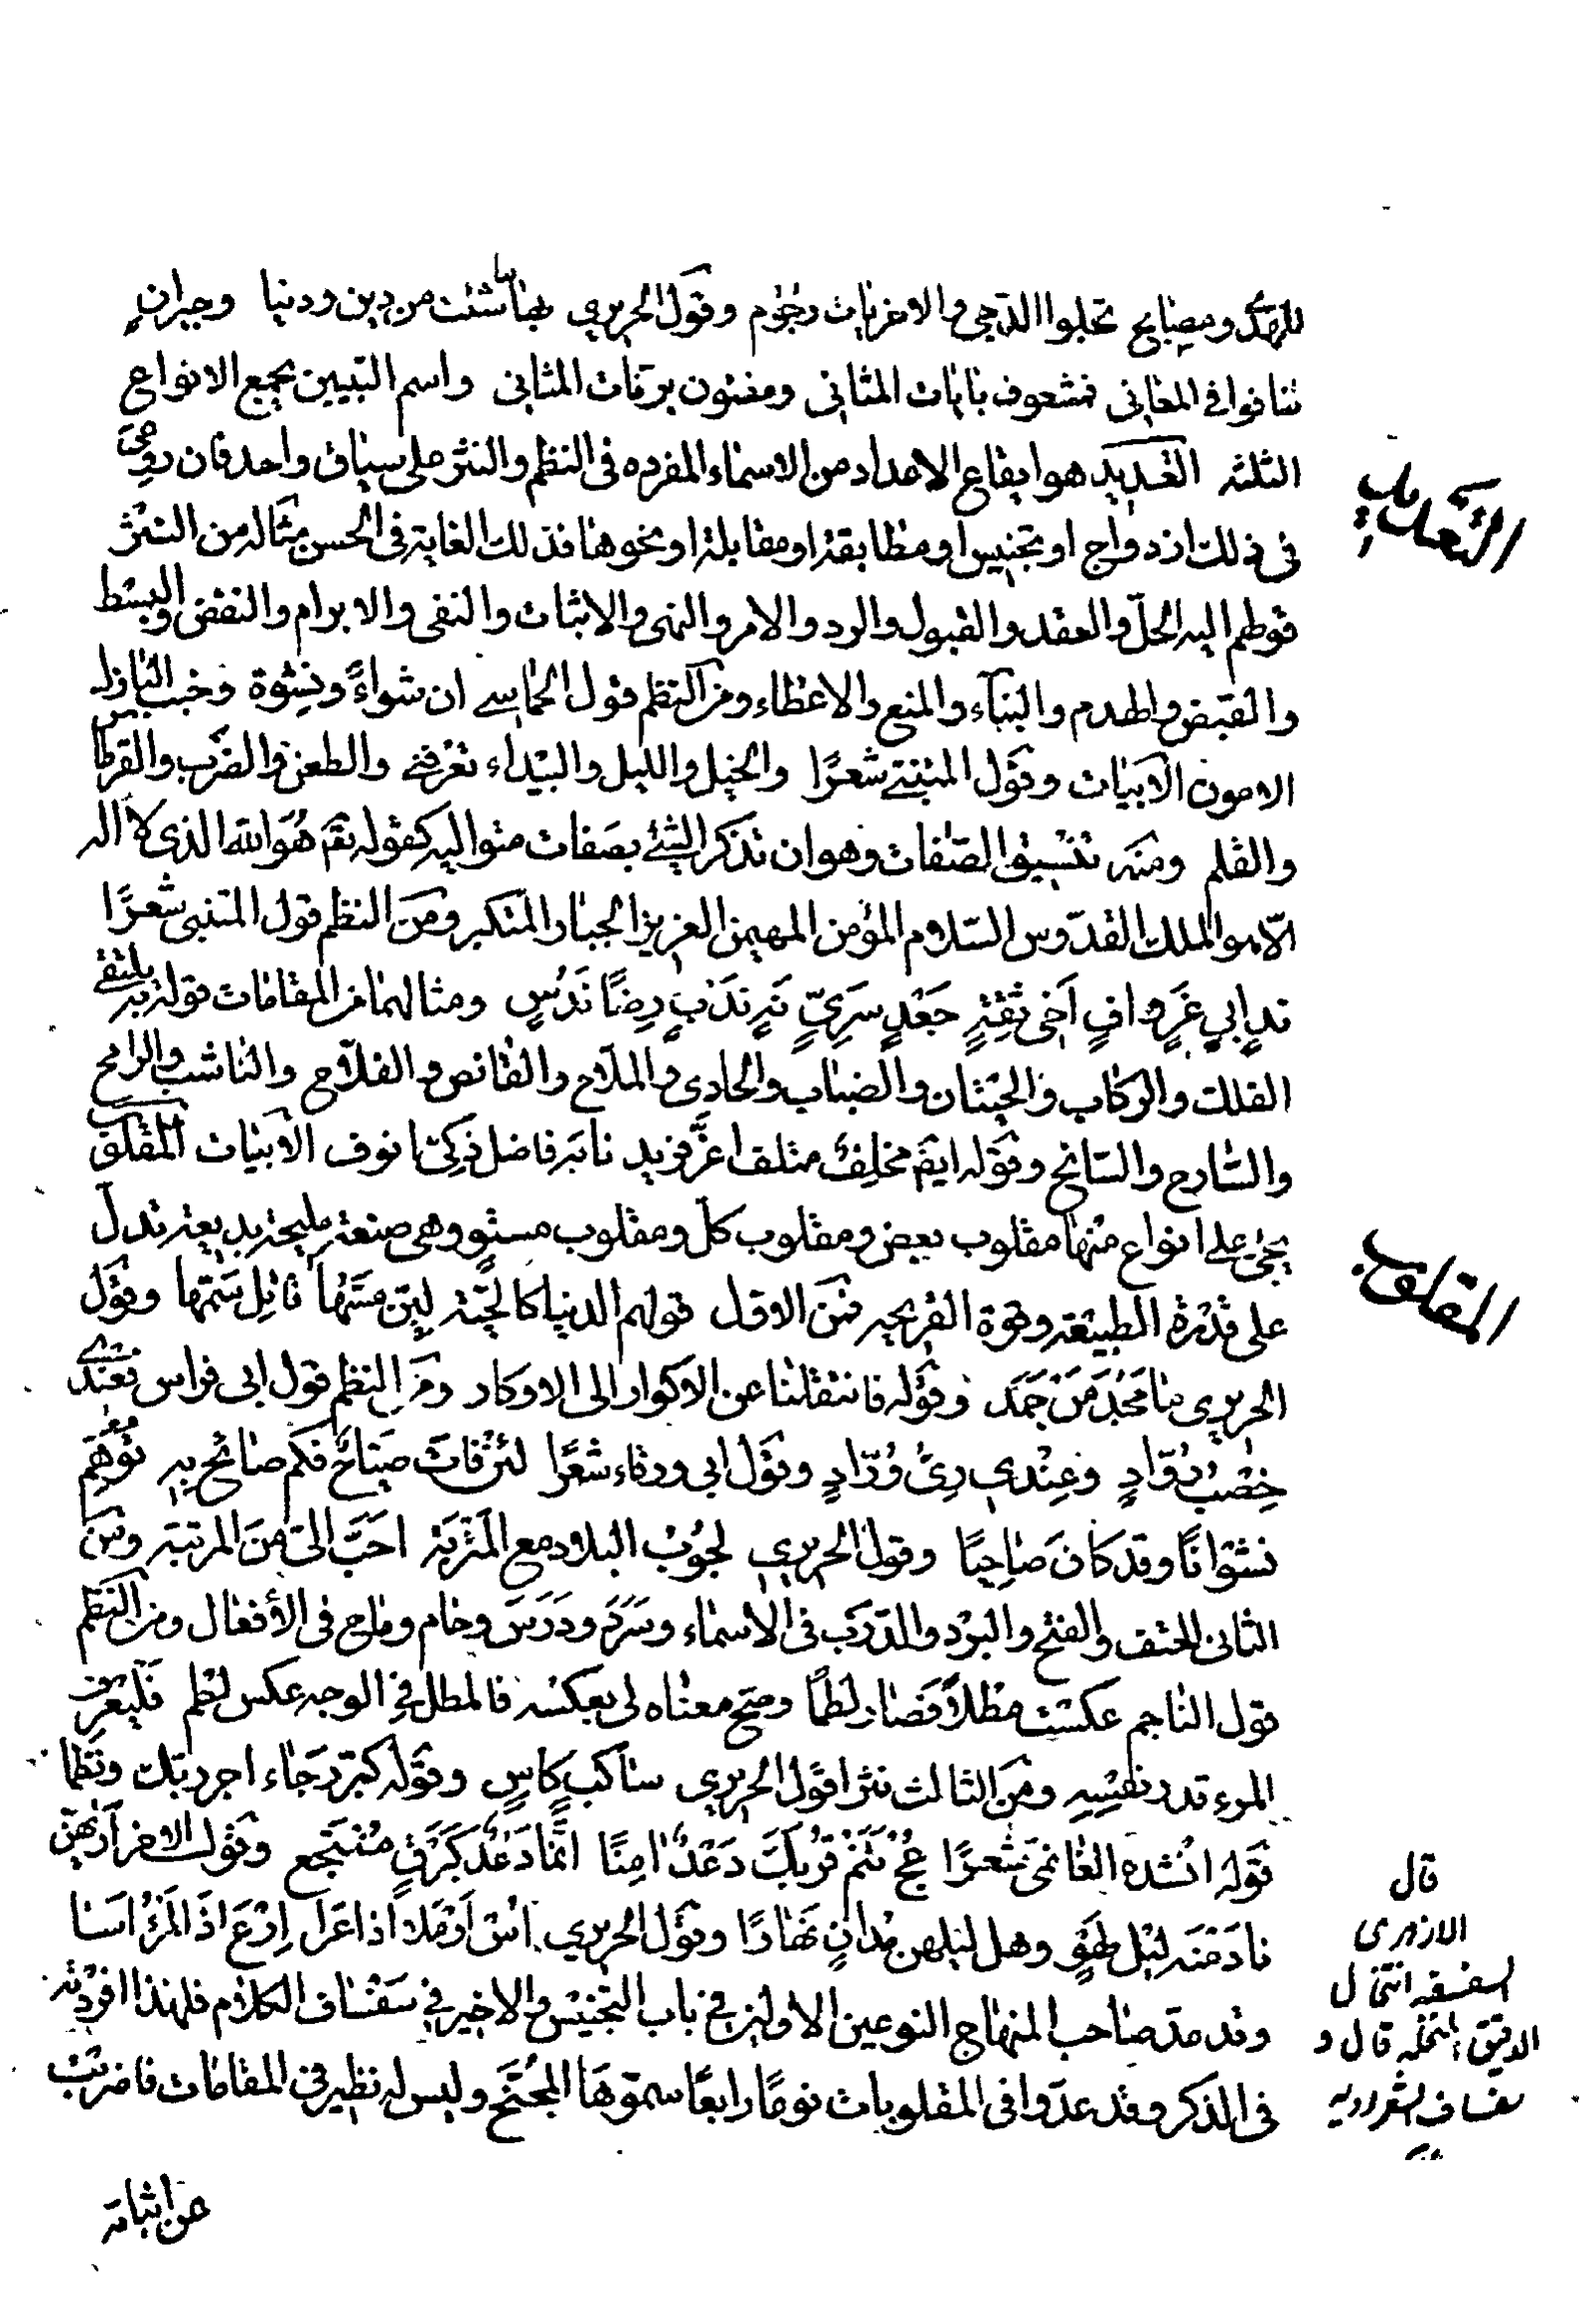 للهدى ومصابيح تجلوا الدجى والاخريات رجوم وقول الحريري بها ما شئت من دين ودنيا وجيران
تنافوا في المعاني فمشعوف بآيات المثاني ومفتون برنات المثاني واسم التبيين يجمع الانواع
الثلثه التعديد هو ايقاع الاعداد من الاسماء المفرده في النظم والنثر على سياق واحد فان روعي
في ذلك ازدواج او تجنيس او مطابقة او مقابلة او نحوها فذلك الغاية في الحسن مثاله من النثر
قولهم اليه الحل والعقد والقبول والرد والامر والنهي والاثبات والنفي والابرام والنقض والبسط
والقبض والهدم والبناء والمنع والاعطاء ومن النظم قول الحماسي ان شواءً ونشوة وخبب البازل
الامون الابيات وقول المتنبي شعرًا والخيل والليل والبيداء تعرفني والطعن والضرب والقرطاس
والقلم ومنه تنسيق الصفات وهو ان تذكر الشئ بصفات متواليه كقوله تعم هو الله الذي لا اله
الّا هو الملك القدّوس السّلام المؤمن المهيمن العزيز الجبار المتكبر ومن النظم قول المتنبي شعرًا
ندٍ ابيٍ غرٍ وافٍ اخي ثقةٍ جعدٍ سريٍّ نهٍ ندبٍ رضًا ندسٍ ومثالهما من المقامات قوله به يلتقي
الفلك والركاب والحيتان والضباب والحادي والملّاح والقانص والفلّاح والناشب والرامح
والسّارح والسّابح وقوله ايضم مخلف متلف اغرّ فريد نابه فاضل ذكيّ انوف الابيات المقلوب
يجئ على انواع منها مقلوب بعض ومقلوب كل ومقلوب مستوٍ وهي صنعة مليحة بديعة تدل
على قدرة الطبيعة وقوة القريحه فمن الاول قولهم الدنيا كالحيّة ليّن مسّها قاتل سمّها وقول
الحريري ما مجد من جمد وقوله فانتقلنا عن الاكوار الى الاوكار ومن النظم قول ابي فراس فعندي
خصب روّادٍ وعندي ريّ ورّادٍ وقول ابي ورقاء شعرًا لئن فات صباحٌ فكم صائح به توهم
نشوانًا وقد كان صاحيًا وقول الحريري لجوب البلاد مع المتربة احبّ الىّ من المرتبة ومن
الثاني الحتف والفتح والبرد والدرب في الاسماء وسرد ودرس وحام وماح في الأفعال ومن النظم
قول الناجم عكست مطلاً فصار لطمًا وصحّ معناه لي بعكسه فالمطل في الوجه عكس لطم فليعرف
المرء قدر نفسه ومن الثالث نثرا قول الحريري ساكب كاسٍ وقوله كبّر رجاء اجر ربّك ونظما
قوله انشده الغانمي شعرًا عج تنم قربك دعد امنًا انما دعد كبرقٍ منتجع وقول الاخر اراهنّ
نادمنه ليل لهوٍ وهل ليلهن مدانٍ نهارًا وقول الحريري اس ارملا اذا عرا ارع اذا المرؤ اسا
وقد عدّ صاحب المنهاج النوعين الاولين في باب التجنيس والاخير في سفساف الكلام فلهذا افردته
في الذكر وقد عدّوا في المقلوبات نوعًا رابعًا سموها المجنّح وليس له نظير في المقامات فاضربت
عن اثباته
التعديد
المقلوب
قال
الازهري
السفسفة انتخال
الدقيق بالمنخل قال و
سفساف الشعر رديه